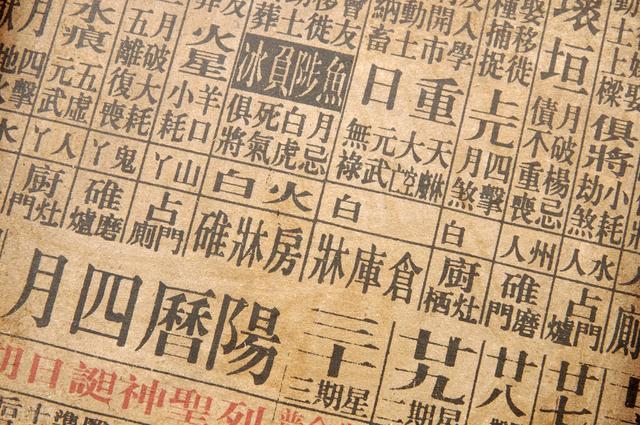 壞垣
俱將
小耗
劫煞
月破
楊忌
債不重喪
娶移徙
種捕捉
上元
四擊
月煞
人學
開市
動土
納畜
重日
天
大空
元武
無祿
移徙
魚陟負冰
月忌
白虎
死氣
俱將
火星
羊口
小耗
水痕
月破大耗
五離復喪
五虛
元武
四擊
水人
州人
白
白
火白
山丫
鬼丫
人丫
水
占門爐
碓磨門
廚灶栖
倉庫牀
房牀碓
占門廁
碓磨爐
廚灶門
廿七
廿八
廿九
星期二
三十
星期三
陽曆四月
列聖神誕日